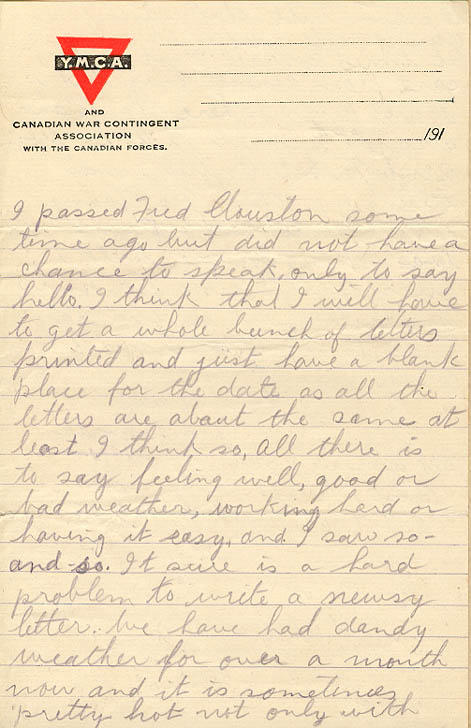 Y.M.C.A.
AND
CANADIAN WAR CONTINGENT
ASSOCIATION
WITH THE CANADIAN FORCES.
191
I passed Fred Clouston some
time ago but did not have a
chance to speak, only to say
hello. I think that I will have
to get a whole bunch of letters
printed and just have a blank
place for the date as all the
letters are about the same at
least I think so, all there is
to say feeling well, good or
bad weather, working hard or
having it easy, and I saw so-
and-so. It sure is a hard
problem to write a newsy
letter. We have had dandy
weather for over a month
now and it is sometimes
pretty hot not only with